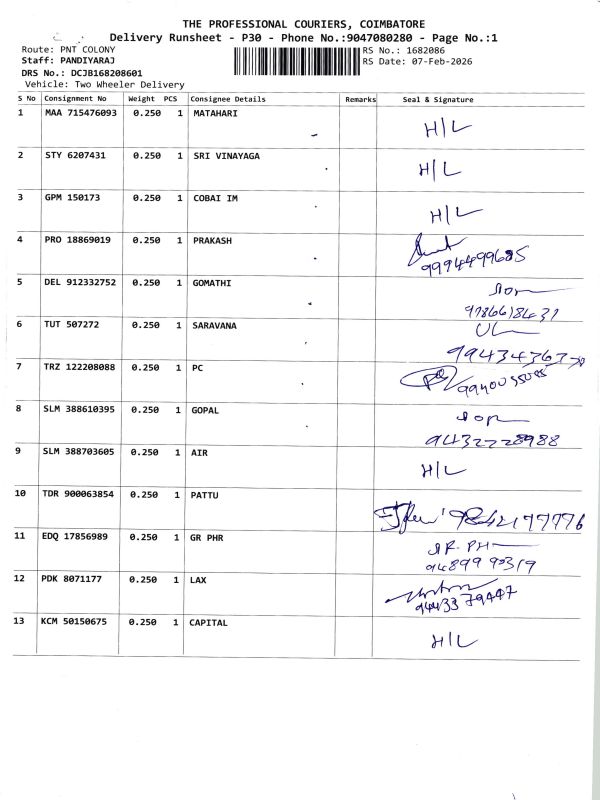 THE PROFESSIONAL COURIERS, COIMBATORE
Delivery Runsheet - P30 - Phone No.:9047080280 - Page No.:1
Route: PNT COLONY
RS No.: 1682086
Staff: PANDIYARAJ
RS Date: 07-Feb-2026
DRS No.: DCJB168208601
Vehicle: Two Wheeler Delivery
S No Consignment No Weight PCS Consignee Details Remarks Seal & Signature
1 MAA 715476093 0.250 1 MATAHARI H/L
2 STY 6207431 0.250 1 SRI VINAYAGA H/L
3 GPM 150173 0.250 1 COBAI IM H/L
4 PRO 18869019 0.250 1 PRAKASH
5 DEL 912332752 0.250 1 GOMATHI
6 TUT 507272 0.250 1 SARAVANA
7 TRZ 122208088 0.250 1 PC
8 SLM 388610395 0.250 1 GOPAL
9432228988
9 SLM 388703605 0.250 1 AIR H/L
10 TDR 900063854 0.250 1 PATTU
9842177776
11 EDQ 17856989 0.250 1 GR PHR
94899 90319
12 PDK 8071177 0.250 1 LAX
94433 79447
13 KCM 50150675 0.250 1 CAPITAL H/L